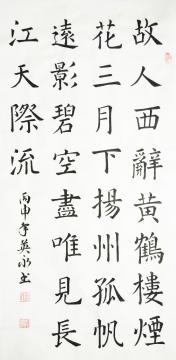 故人西辭黃鶴樓煙
花三月下揚州孤帆
遠影碧空盡唯見長
江天際流
丙申年英永书